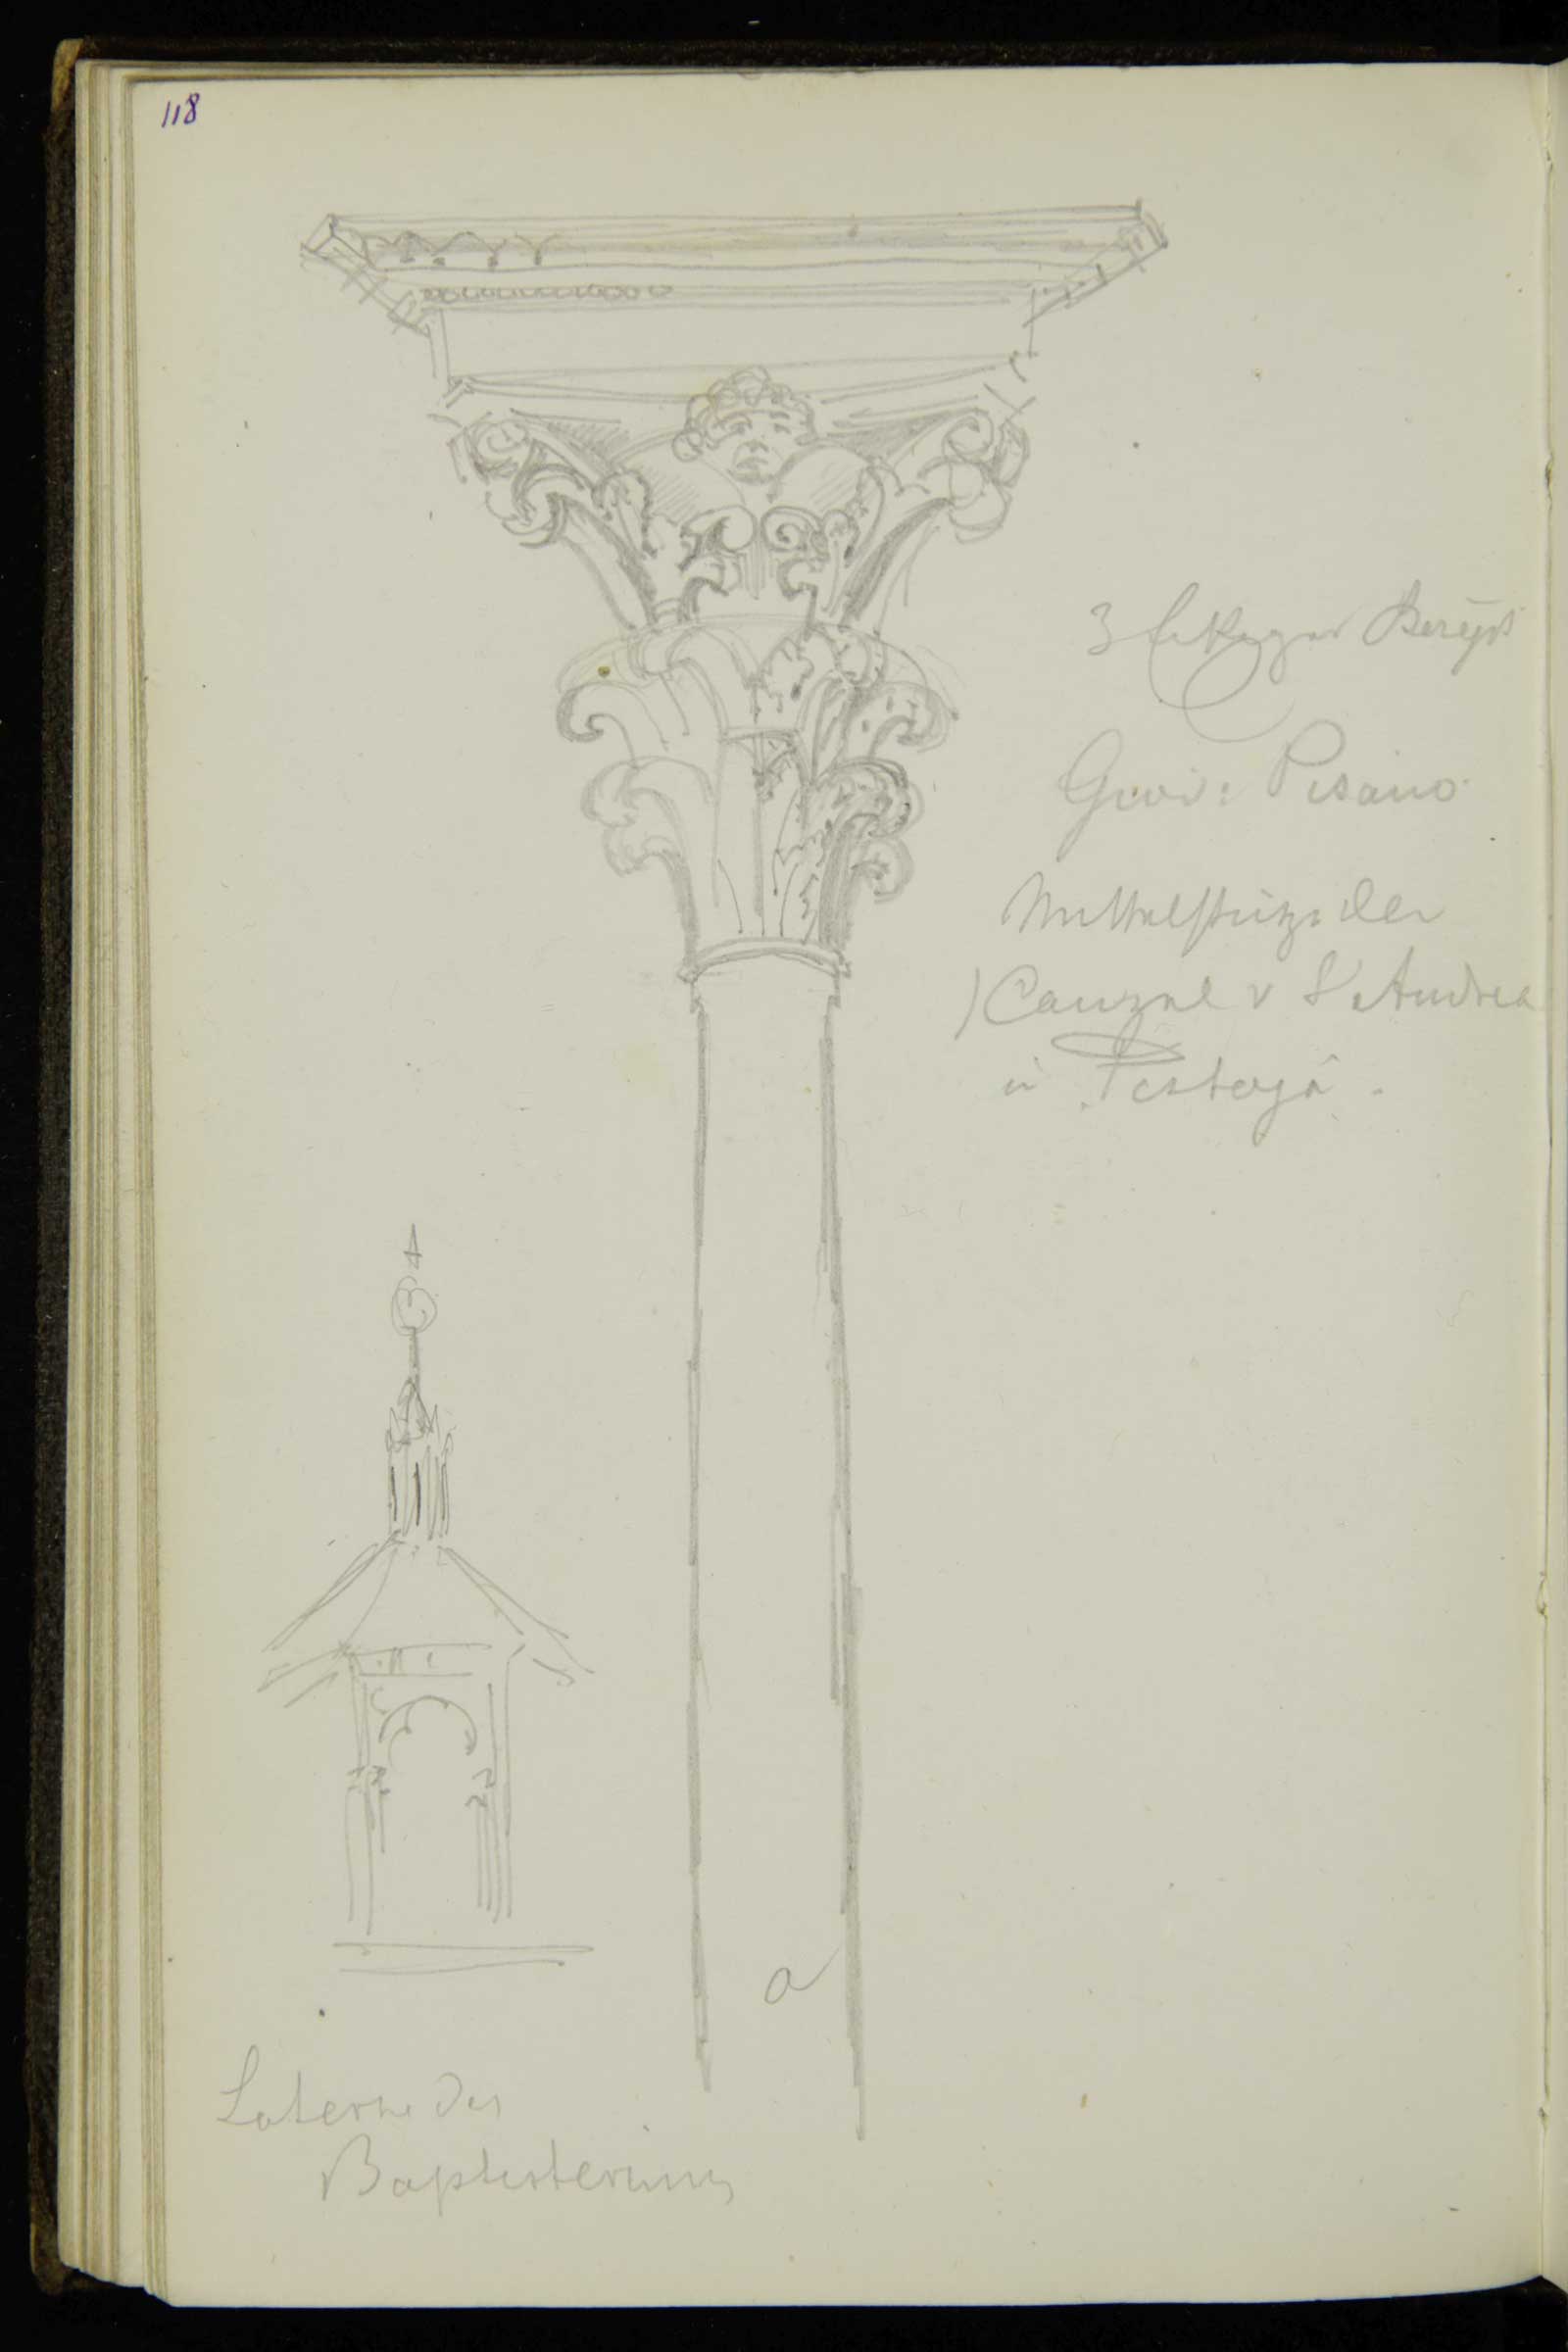 118
3
Giov: Pisano
Mittelstütze der
Canzel v S. Andrea
in Pistoja.
a
Laterne des
Baptisteriums